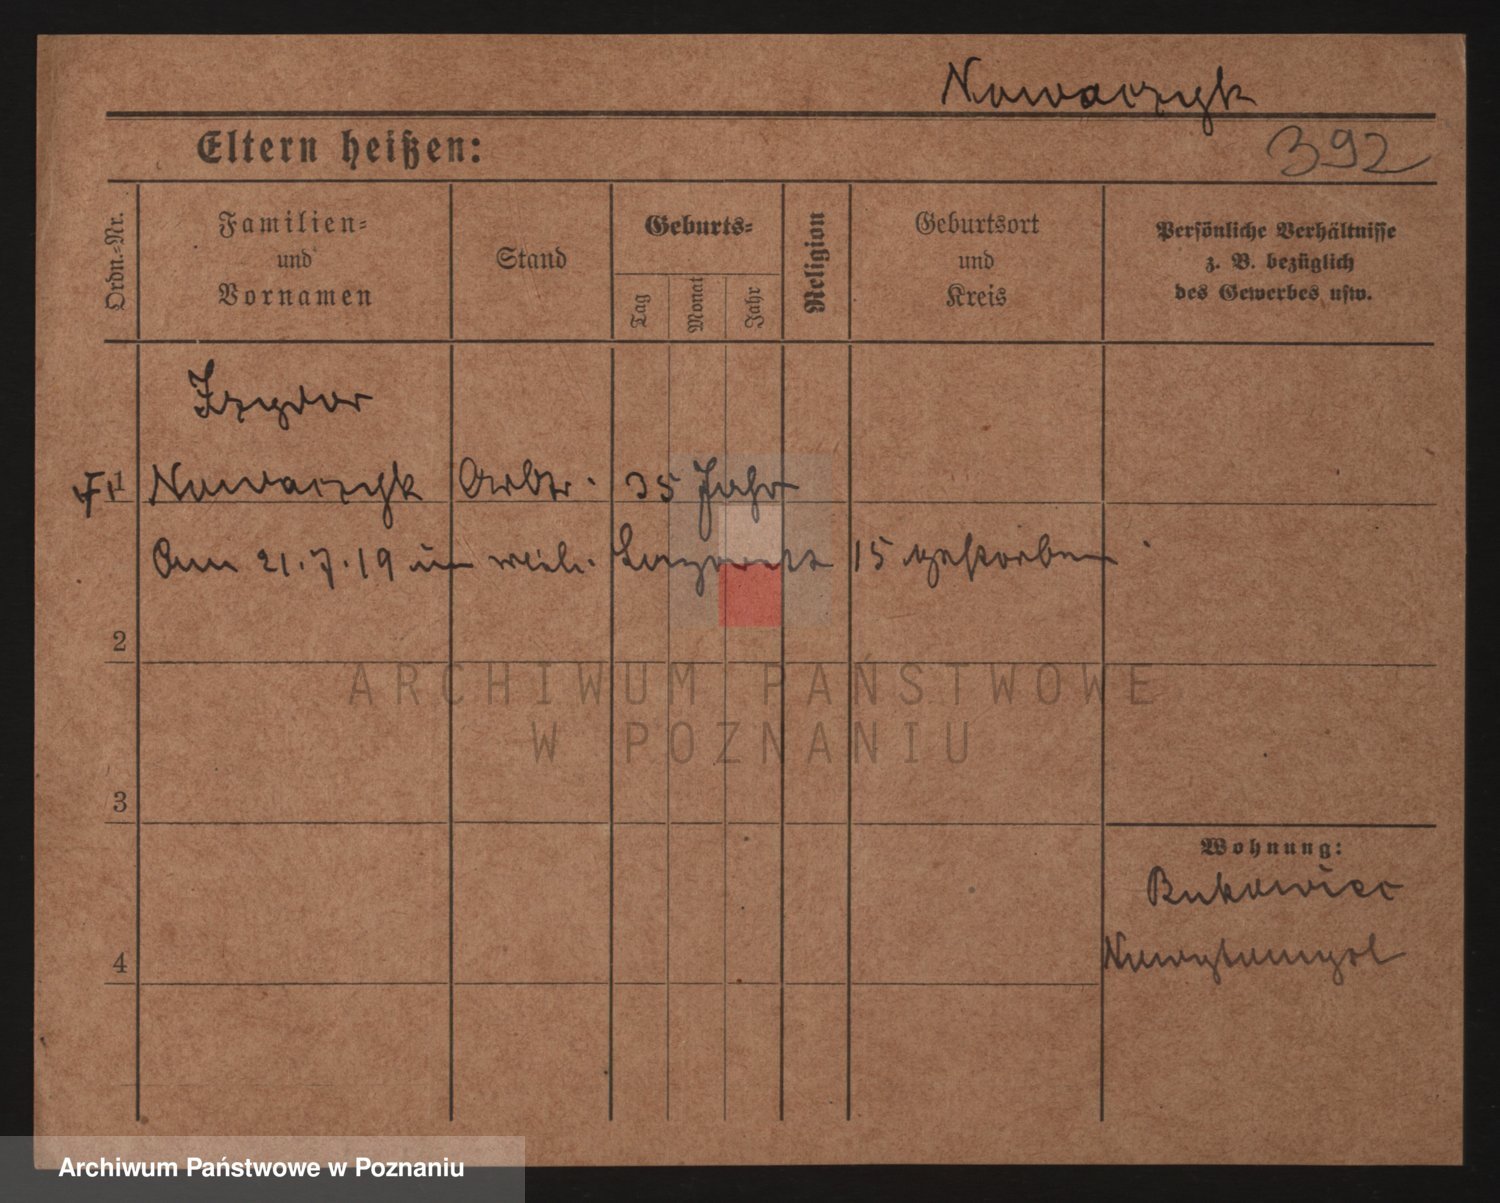 Nowaczyk
Eltern heißen:
392
Ordn.-Nr.
Familien-
und
Vornamen
Stand
Geburts-
Tag
Monat
Jahr
Religion
Geburtsort
und
Kreis
Persönliche Verhältnisse
z. B. bezüglich
des Gewerbes usw.
Izydor
1 Nowaczyk Arbtr. 35 Jahr
Am 21.7.19 im Lazarett 15 gestorben
2
ARCHIWUM PAŃSTWOWE
W POZNANIU
3
Wohnung:
Bukowiec
4
Neuytomysl
Archiwum Państwowe w Poznaniu